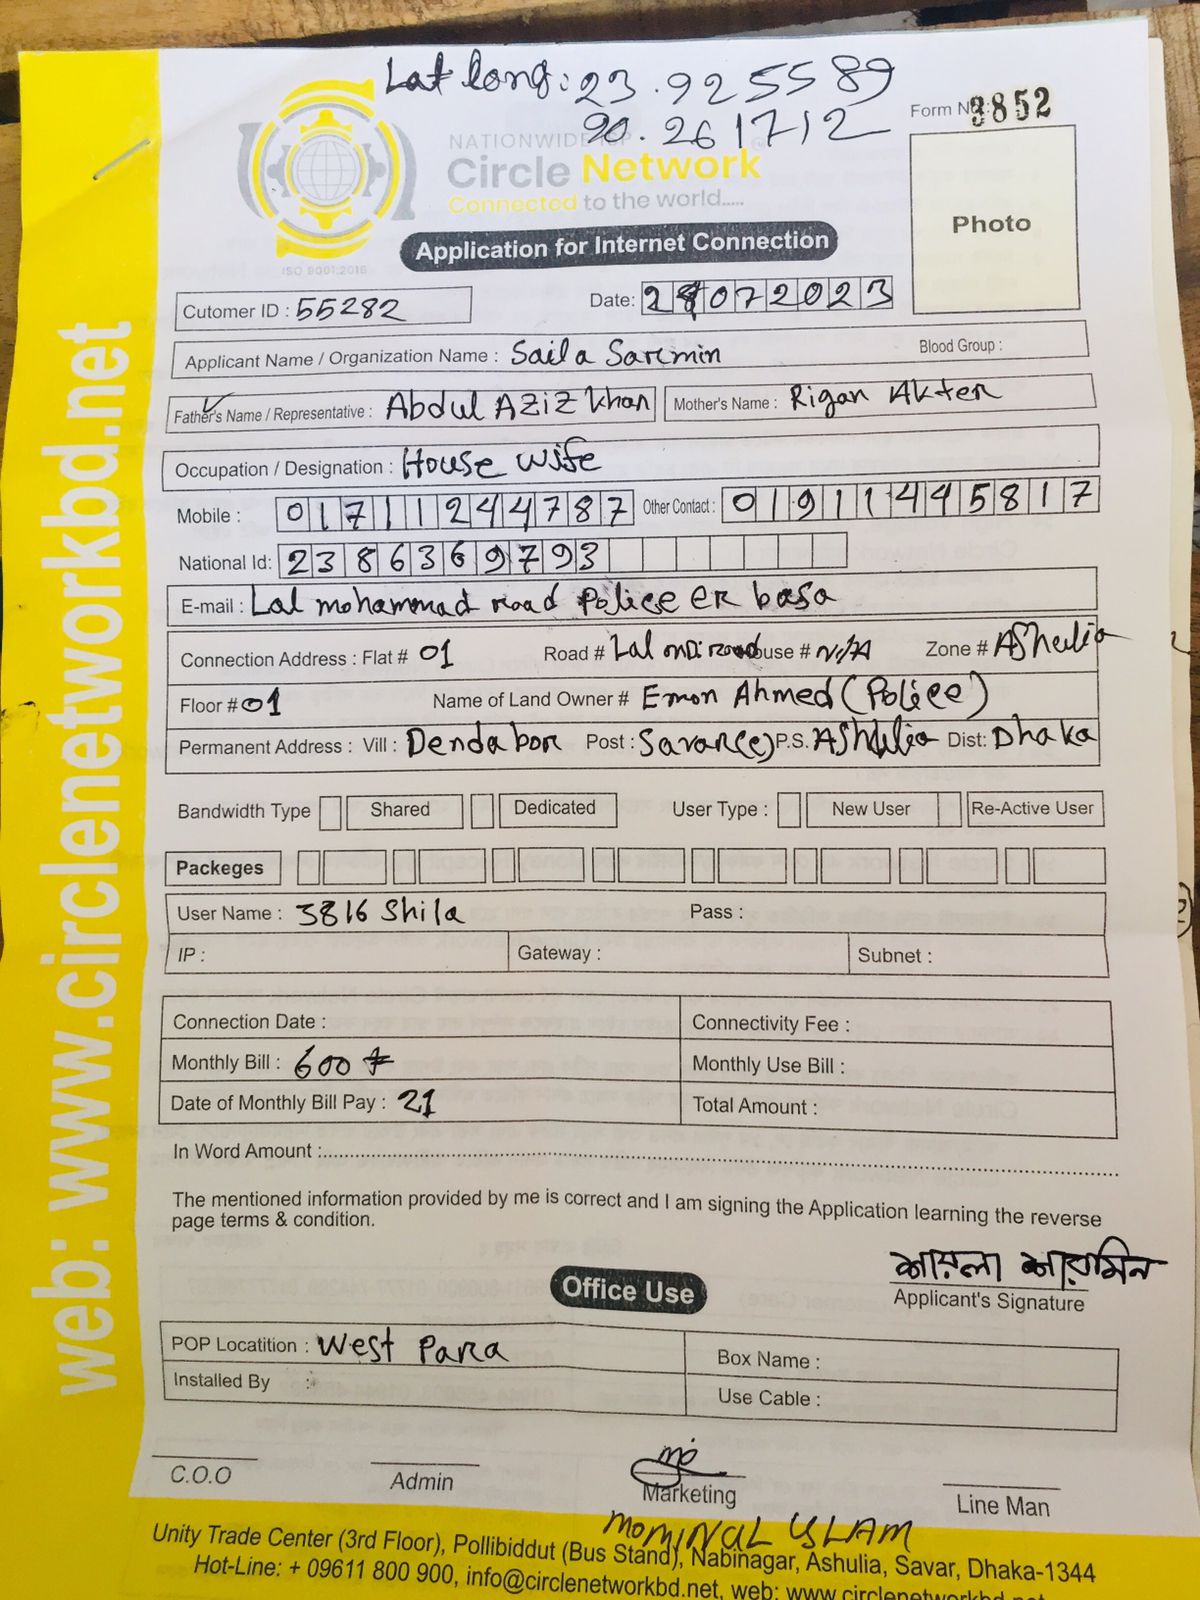 Lat long: 23.925589
90.261712
Form No: 3852
NATIONWIDE ISP
Circle Network
Connected to the world.....
ISO 9001:2016
Photo
Application for Internet Connection
Cutomer ID : 55282
Date: 28072023
Applicant Name / Organization Name : Saila Sarmin
Blood Group :
Father's Name / Representative : Abdul AZIZ Khan
Mother's Name : Rigan Akter
Occupation / Designation : House wife
Mobile : 01711244787
Other Contact : 01911445817
National Id: 2386369793
E-mail : Lal mohammad road Police er basa
Connection Address : Flat # 01 Road # Lal mdi road House # N/A Zone # Ashulia
Floor # 01 Name of Land Owner # Emon Ahmed (Police)
Permanent Address : Vill : Dendabor Post : Savar(e) P.S. Ashulia Dist: Dhaka
Bandwidth Type Shared Dedicated User Type : New User Re-Active User
Packeges
User Name : 3816 Shila Pass :
IP : Gateway : Subnet :
Connection Date : Connectivity Fee :
Monthly Bill : 600 Monthly Use Bill :
Date of Monthly Bill Pay : 21 Total Amount :
In Word Amount :
The mentioned information provided by me is correct and I am signing the Application learning the reverse
page terms & condition.
শায়লা শারমিন
Applicant's Signature
Office Use
POP Locatition : West Para Box Name :
Installed By : Use Cable :
C.O.O Admin Marketing Line Man
MOMINUL YSLAM
Unity Trade Center (3rd Floor), Pollibiddut (Bus Stand), Nabinagar, Ashulia, Savar, Dhaka-1344
Hot-Line: + 09611 800 900, info@circlenetworkbd.net, web: www.circlenetworkbd.net
web: www.circlenetworkbd.net